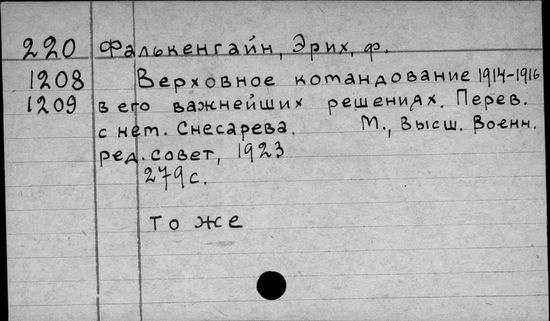 220 Фалькенгайн, Эрих, ф.
1208 Верховное командование 1914-1916
1209 в его важнейших решениях. Перев.
с нем. Снесарева. М., Высш. Военн.
ред. совет, 1923
279 с.
То же